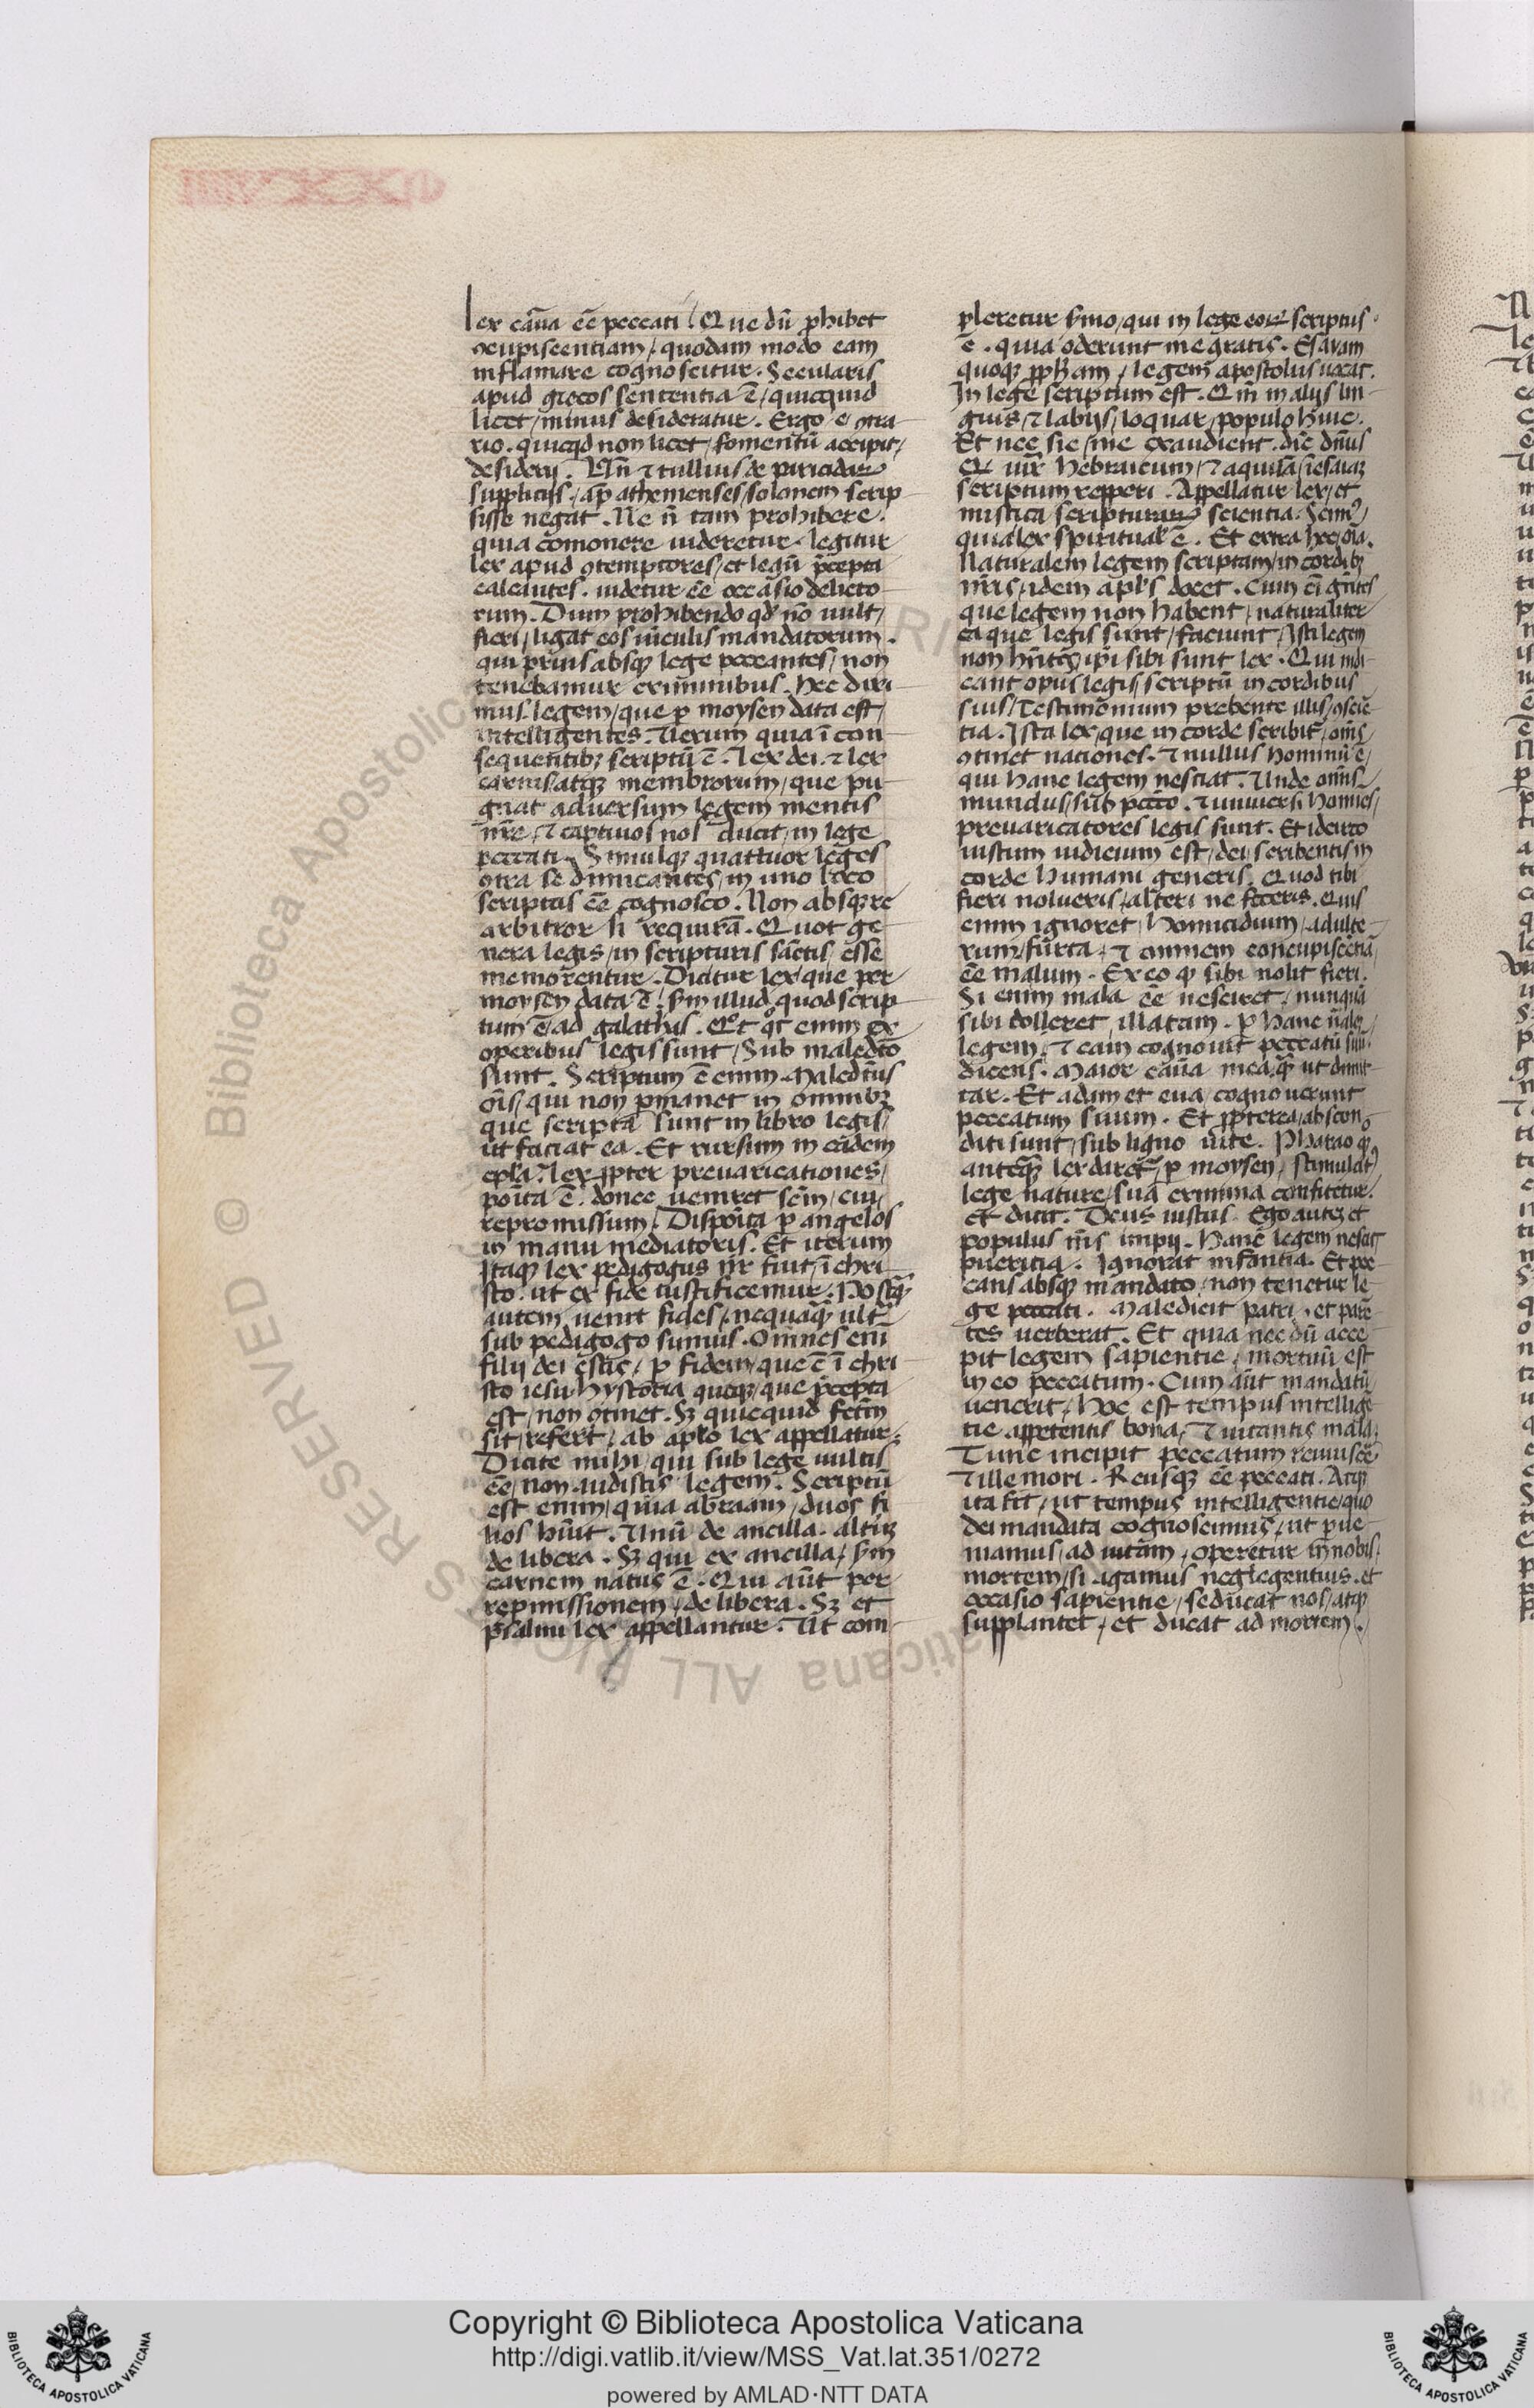 lex cãũa eẽ peccati. Que dũ phibet
ɔcupiscentiam, quodam modo eam
inflamare cognoscitur. Secularis
apud grecos sententia ẽ, quicquid
licet, minus desideratur. Ergo e ɔtra
rio. quicqd non licet, fomentũ accipit,
desiderij. Uñ ⁊ tullius de piricidarꝝ
supplicijs, ap̃ athenienses, solonem scrip
sisse negat. Ne ñ tam prohibere.
quia cõmonere uideretur. legitur
lex apud ɔtemptores, et legũ p̃cepta
calcantes. uidetur eẽ occasio delicto
rum. Dum prohibendo qd̃ nõ uult,
fieri, ligat eos uĩculis mandatorum.
qui prius absqꝫ lege peccantes, non
tenebamur criminibus. Hec dixi
mus. legem, que p moysen data est,
intelligentes. Uerum quia ĩ con
sequentibꝫ scriptũ ẽ. Lex dei. ⁊ lex
carnis atqꝫ membrorum, que pu
gnat aduersum legem mentis
nr̃e, ⁊ captiuos nos ducit, in lege
peccati. Simulqꝫ quattuor leges
ɔtra se dimicantes, in uno loco
scriptas eẽ cognosco. Non absqꝫ re
arbitror si requirã. Quot ge
nera legis, in scripturis sãctis, esse
memorentur. Dicitur lex que per
moysen data ẽ, scd̃m illud quod scrip
tum ẽ, ad galathas. Qͦtqͦt enim ex
operibus legis sunt, Sub maledcõ
sunt. Scriptum ẽ enim. Maledc̃us
oĩs, qui non pmanet in omnibꝫ
que scripta sunt in libro legis,
ut faciat ea. Et rursum in eãdem
epl̃a. lex ꝓpter preuaricationes,
poĩta ẽ. donec ueniret sem̃, cui
repromissum. Dispoĩta p angelos
in manu mediatoris. Et iterum
Itaqꝫ lex pedigogus nr̃ fuit, ĩ chri
sto. ut ex fide iustificemur. Postq̃ꝫ
autem uenit fides, nequaq̃ꝫ ult̃
sub pedigogo sumus. Omnes eni
filij dei estis, p fidem, que ẽ ĩ chri
sto iesu. Hystoria quoqꝫ, que p̃cepta
est, non ɔtinet. Sꝫ quicquid fctm̃
sit, refert, ab apl̃o lex appellatur.
Dicite mihi, qui sub lege uultis
eẽ, non audistis legem. Scriptũ
est enim, quia abraam, duos fi
lios hũit. Unũ de ancilla. altiꝝ
de libera. Sꝫ qui ex ancilla, scd̃m
carnem natus ẽ. Qui aũt per
repmissionem, de libera. Sꝫ et
psalmi lex appellantur. Ut com
pleretur s̃mo, qui in lege eoꝝ scriptus
ẽ. quia oderunt me gratis. Esayam
quoqꝫ ꝓph̃iam, legem apostolus uocat.
In lege scriptum est. Qm̃ in alijs lin
guis, ⁊ labijs, loquar, populo huic.
Et nec sic, me exaudient. dic̃ dñus
Qd iux̃ hebraicum, ⁊ aquilã, ĩ esaiaꝫ
scriptum repperi. Appellatur lex, et
mistica scripturarꝝ scientia. Scimꝰ,
quia lex spiritual̃ ẽ. Et extra hec, oĩa.
Naturalem legem scriptam, in cordibꝫ
nr̃is, idem apl̃s docet. Cum eĩ gñtes
que legem non habent, naturaliter
ea que legis sunt, faciunt, Isti legem
non hñtes, ipĩ sibi sunt lex. Qui indi
cant opus legis, scriptũ in cordibus
suis, Testimonium prebente illis, ɔsciẽ
tia. Ista lex, que in corde scribit̃, oms̃
ɔtinet nationes. ⁊ nullus hominũ ẽ,
qui hanc legem nesciat. Unde omĩs
mundus, sub pccõ. ⁊ uniuersi homies,
preuaricatores legis sunt. Et idcirco
iustum iudicium est, dei, scribentis in
corde humani generis. Quod tibi
fieri nolueris, alteri ne feceris. Quis
enim ignoret, Homicidium, adulte
rium, furta, ⁊ omnem concupiscẽtiã
eẽ malum. Ex eo qꝫ sibi nolit fieri.
Si enim mala eẽ nesciret, nunquã
sibi dolleret illatam. p hanc ñalez
legem, ⁊ cain cognouit peccatũ suũ.
dicens. Maior cãũa mea, q̃ꝫ ut dimit
tar. Et adam et eua, cognouerunt
peccatum suum. Et ꝓpterea, abscon
diti sunt, sub ligno uite. Pharao qꝫ
anteq̃ꝫ lex daret̃, p moysen, stimulatꝰ
lege nature, sua crimina confitetur.
et dicit. Deus iustus. Ego autez et
populus ms̃ impij. Hanc legem nescit
pueritia. Ignorat infantia. Et pec
cans absqꝫ mandato, non tenetur le
ge peccati. Maledicit patri, et parẽ
tes uerberat. Et quia nec dũ acce
pit legem sapientie, mortuũ est
in eo peccatum. Cum aũt mandatũ
uenerit, hoc est tempus intellige
tie appetentis bona, ⁊ uitantis mala,
Tunc incipit peccatum reuiuiscẽ
⁊ ille mori. Reusqꝫ eẽ peccati. Atqꝫ
ita fit, ut tempus intelligentie, quo
dei mandata cognoscimus, ut pue
niamus, ad uitam, operetur in nobis,
mortem, si agamus neglegentius. et
occasio sapientie, seducat nos, atqꝫ
supplantet, et ducat ad mortem.
Copyright © Biblioteca Apostolica Vaticana
http://digi.vatlib.it/view/MSS_Vat.lat.351/0272
powered by AMLAD·NTT DATA